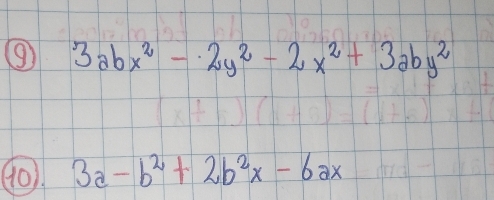 9) 3abx² - 2y² - 2x² + 3aby²
10). 3a - b² + 2b²x - 6ax